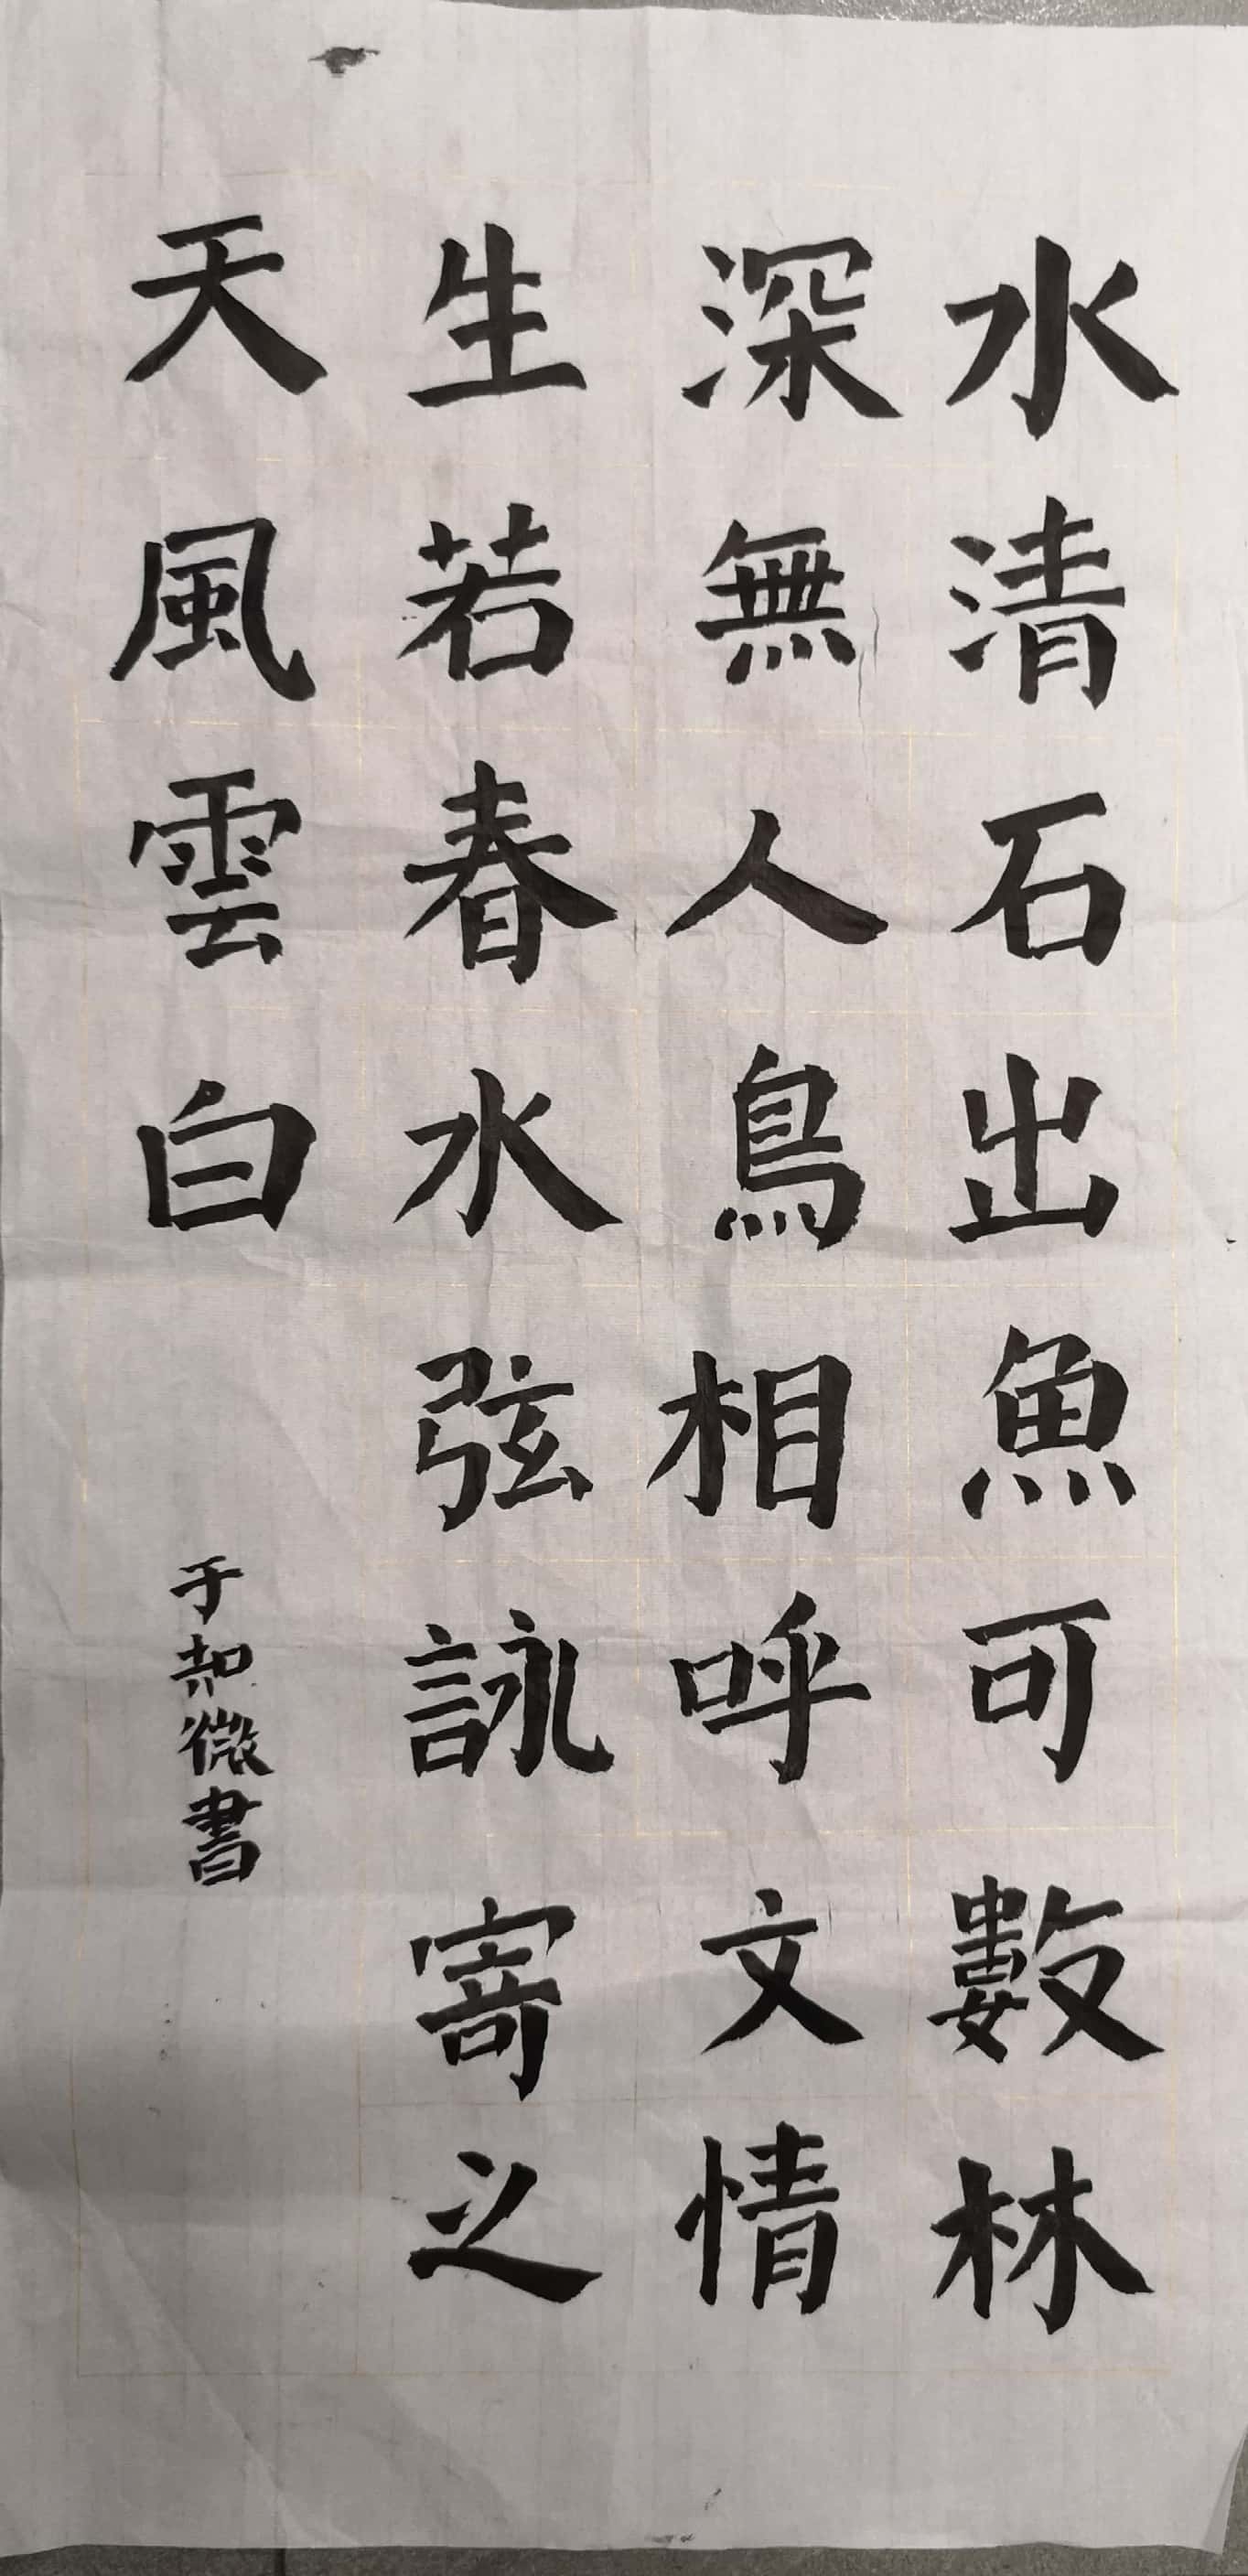 水清石出魚可數林
深無人鳥相呼文情
生若春水弦詠寄之
天風雲白
于知微書